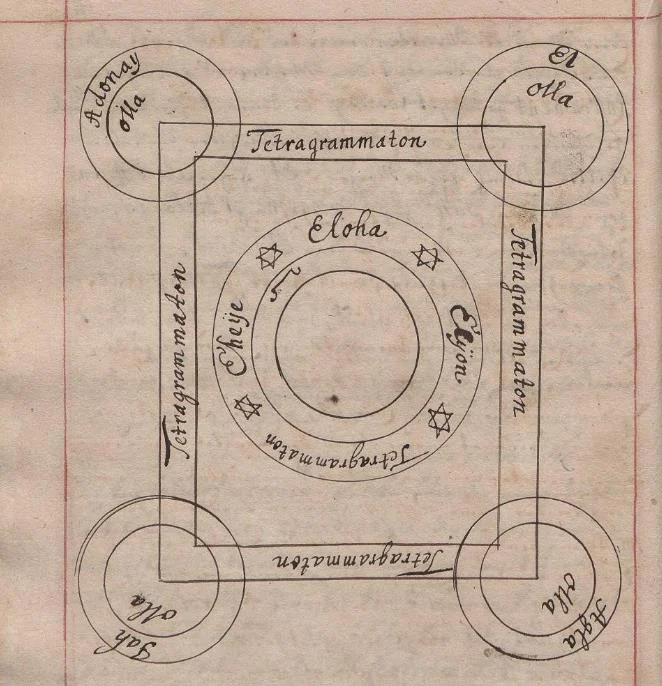 Adonay
olla
El
olla
Tetragrammaton
Tetragrammaton
Tetragrammaton
Eloha
Eheÿe
Elÿon
Tetragrammaton
Tetragrammaton
Jah
olla
Agla
olla